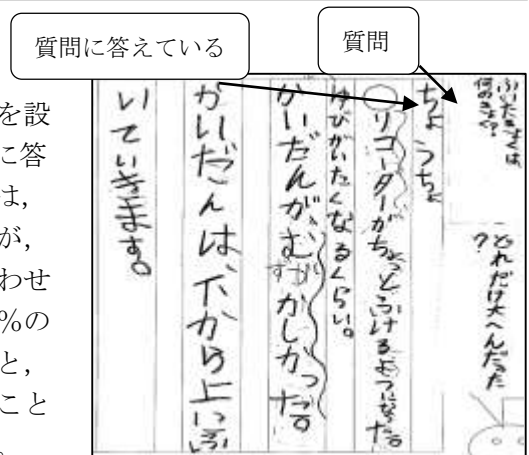 質問に答えている
質問
を設
に答
は，
が，
わせ
%の
と，
こと
。
ふいたきょくは
何のきょく？
どれだけ大へんだった
？
ちょうちょ
リコーダーがちょっとふけるようになった。
ゆびがいたくなるくらい。
かいだんがむずかしかったです。
かいだんは、下から上にふ
いていきます。